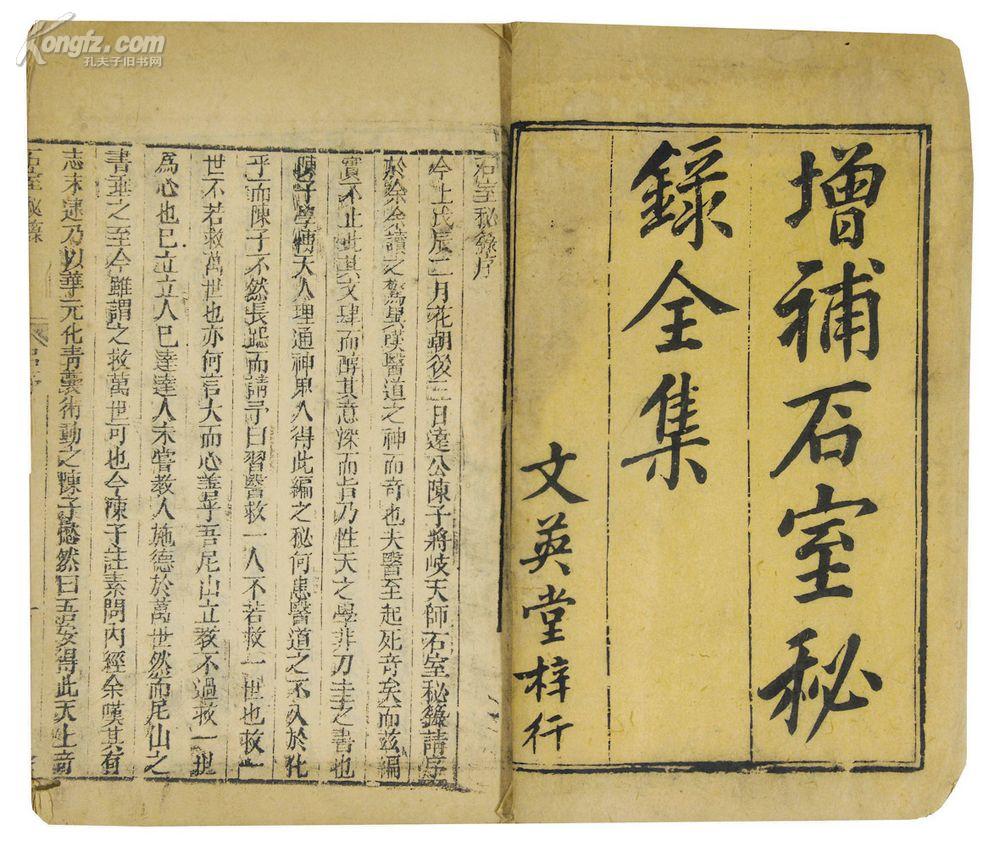 增補石室秘
錄全集
文英堂梓行
石室秘錄序
今上戊辰二月花朝後三日遠公陳子將岐天師石室秘錄請序
於余余讀之驚異嘆醫道之神而奇也夫醫至起死奇矣而茲編
實不止此其文肆而醇其意深而旨乃性天之學非刀圭之書也
陳子學博天人理通神鬼入得此編之秘何患醫道之不入於化
乎而陳子不然長跽而請予曰習醫救一人不若救一世也救一
世不若救萬世也亦何言大而心善乎吾尼山立教不過救一世
為心也巳立立人巳達達人未嘗教人施德於萬世然而尼山之
書垂之至今雖謂之救萬世可也今陳子註素問內經余嘆其有
志未逮乃以華元化青囊術動之陳子愀然曰吾安得此天上奇
石室秘錄
Kongfz.com
孔夫子旧书网